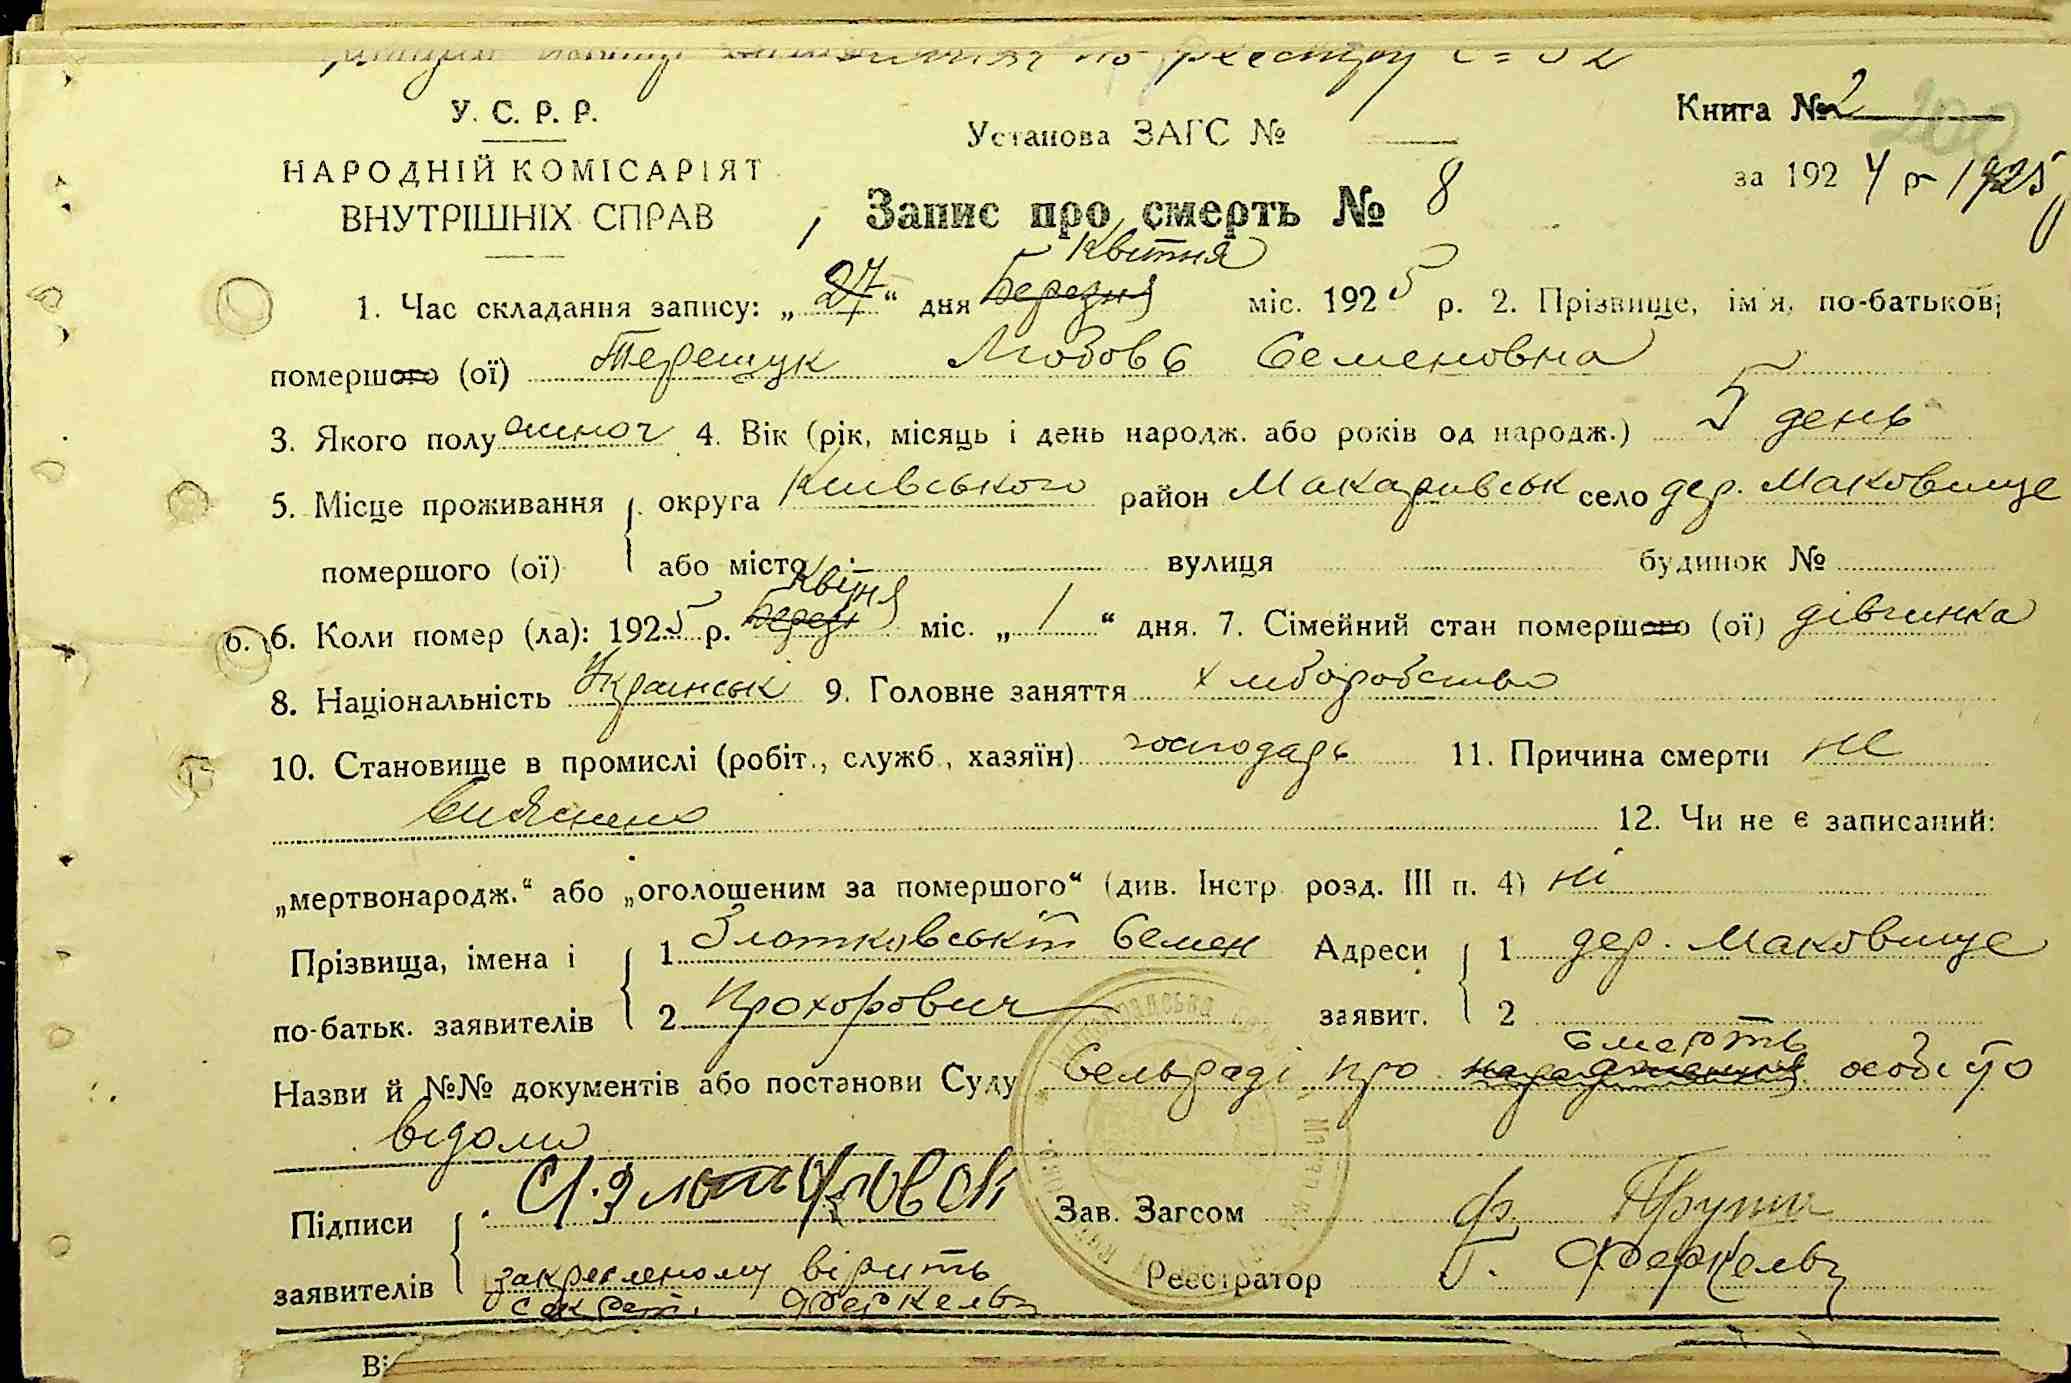 по реестру
У. С. Р. Р.
НАРОДНІЙ КОМІСАРІЯТ
ВНУТРІШНІХ СПРАВ
Установа ЗАГС №
Книга № 2
200
за 1924 р 1925
Запис про смерть № 8
Квітня
1. Час складання запису: „27“ дня Березня міс. 1925 р. 2. Прізвище, ім'я, по-батькові
померш̶о̶г̶о̶ (ої) Терещук Любовь Семеновна
3. Якого полу жіноч 4. Вік (рік, місяць і день народж. або років од народж.) 5 день
5. Місце проживання округа Київського район Макаривськ село дер. Маковище
помершого (ої) або місто вулиця будинок №
Квітня
6. 6. Коли помер (ла): 1925 р. Березн міс. „1“ дня. 7. Сімейний стан померш̶о̶г̶о̶ (ої) дівчинка
8. Національність Українські 9. Головне заняття хліборобство
10. Становище в промислі (робіт., служб., хазяїн) господарь 11. Причина смерти не
вияснено 12. Чи не є записаний:
„мертвонародж.“ або „оголошеним за помершого“ (див. Інстр. розд. III п. 4) ні
Прізвища, імена і 1 Злотковській Семен Адреси 1 дер. Маковище
по-батьк. заявителів 2 Прохорович заявит. 2
смерть
Назви й №№ документів або постанови Суду Сельраді про народження особисто
відомо
Підписи С. Злотковськ Зав. Загсом
заявителів закресленому вірить Реєстратор Г. Феркельц
секрет. Феркельц
Ві